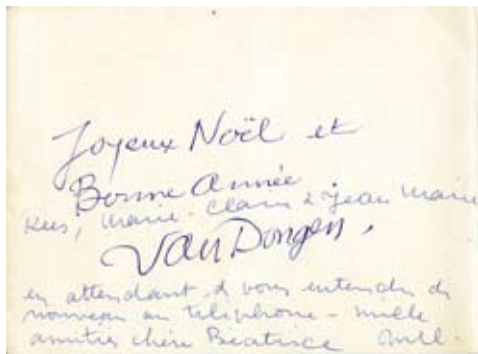 Joyeux Noël et
Bonne Année
Kees, Marie-Claire & Jean Marie
Van Dongen,
en attendant d vous entendre de
nouveau au téléphone - mille
amitiés chère Beatrice